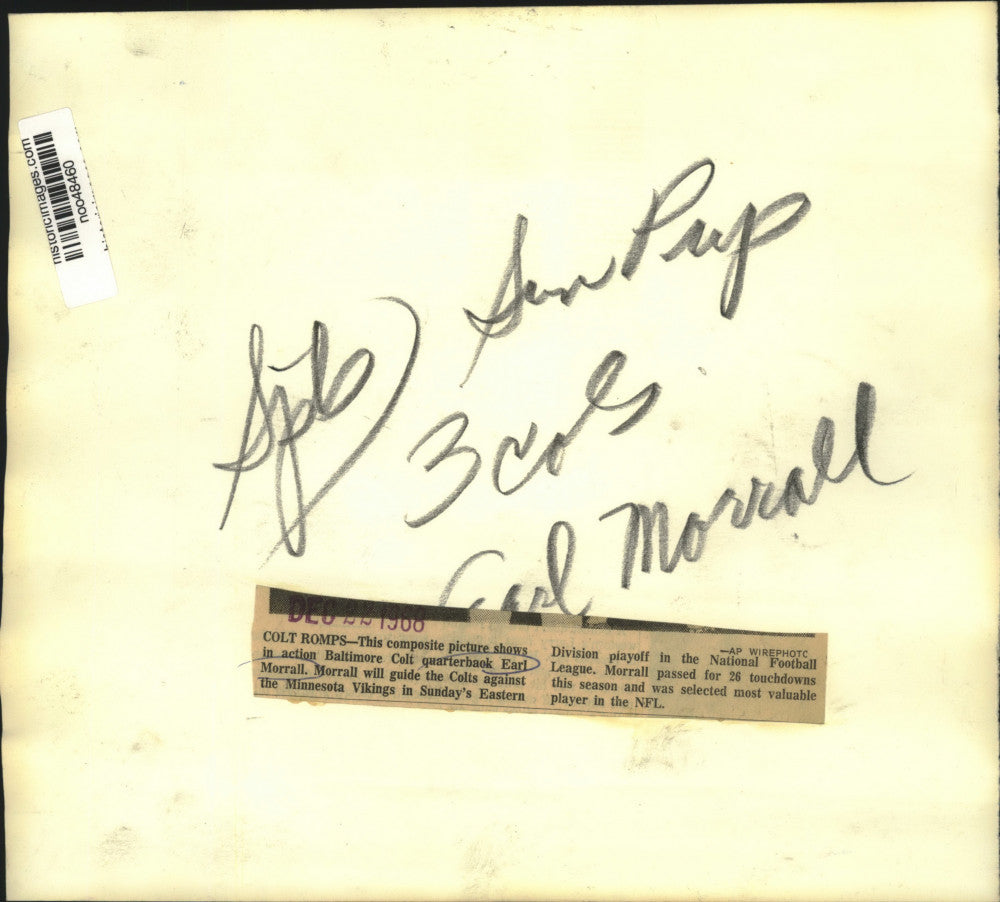 historicimages.com
noo48460
Sun Prep
Spts)
3 cols
Earl Morrall
DEC 22 1968
COLT ROMPS—This composite picture shows
in action Baltimore Colt quarterbaok Earl
Morrall. Morrall will guide the Colts against
the Minnesota Vikings in Sunday's Eastern
—AP WIREPHOTO
Division playoff in the National Football
League. Morrall passed for 26 touchdowns
this season and was selected most valuable
player in the NFL.